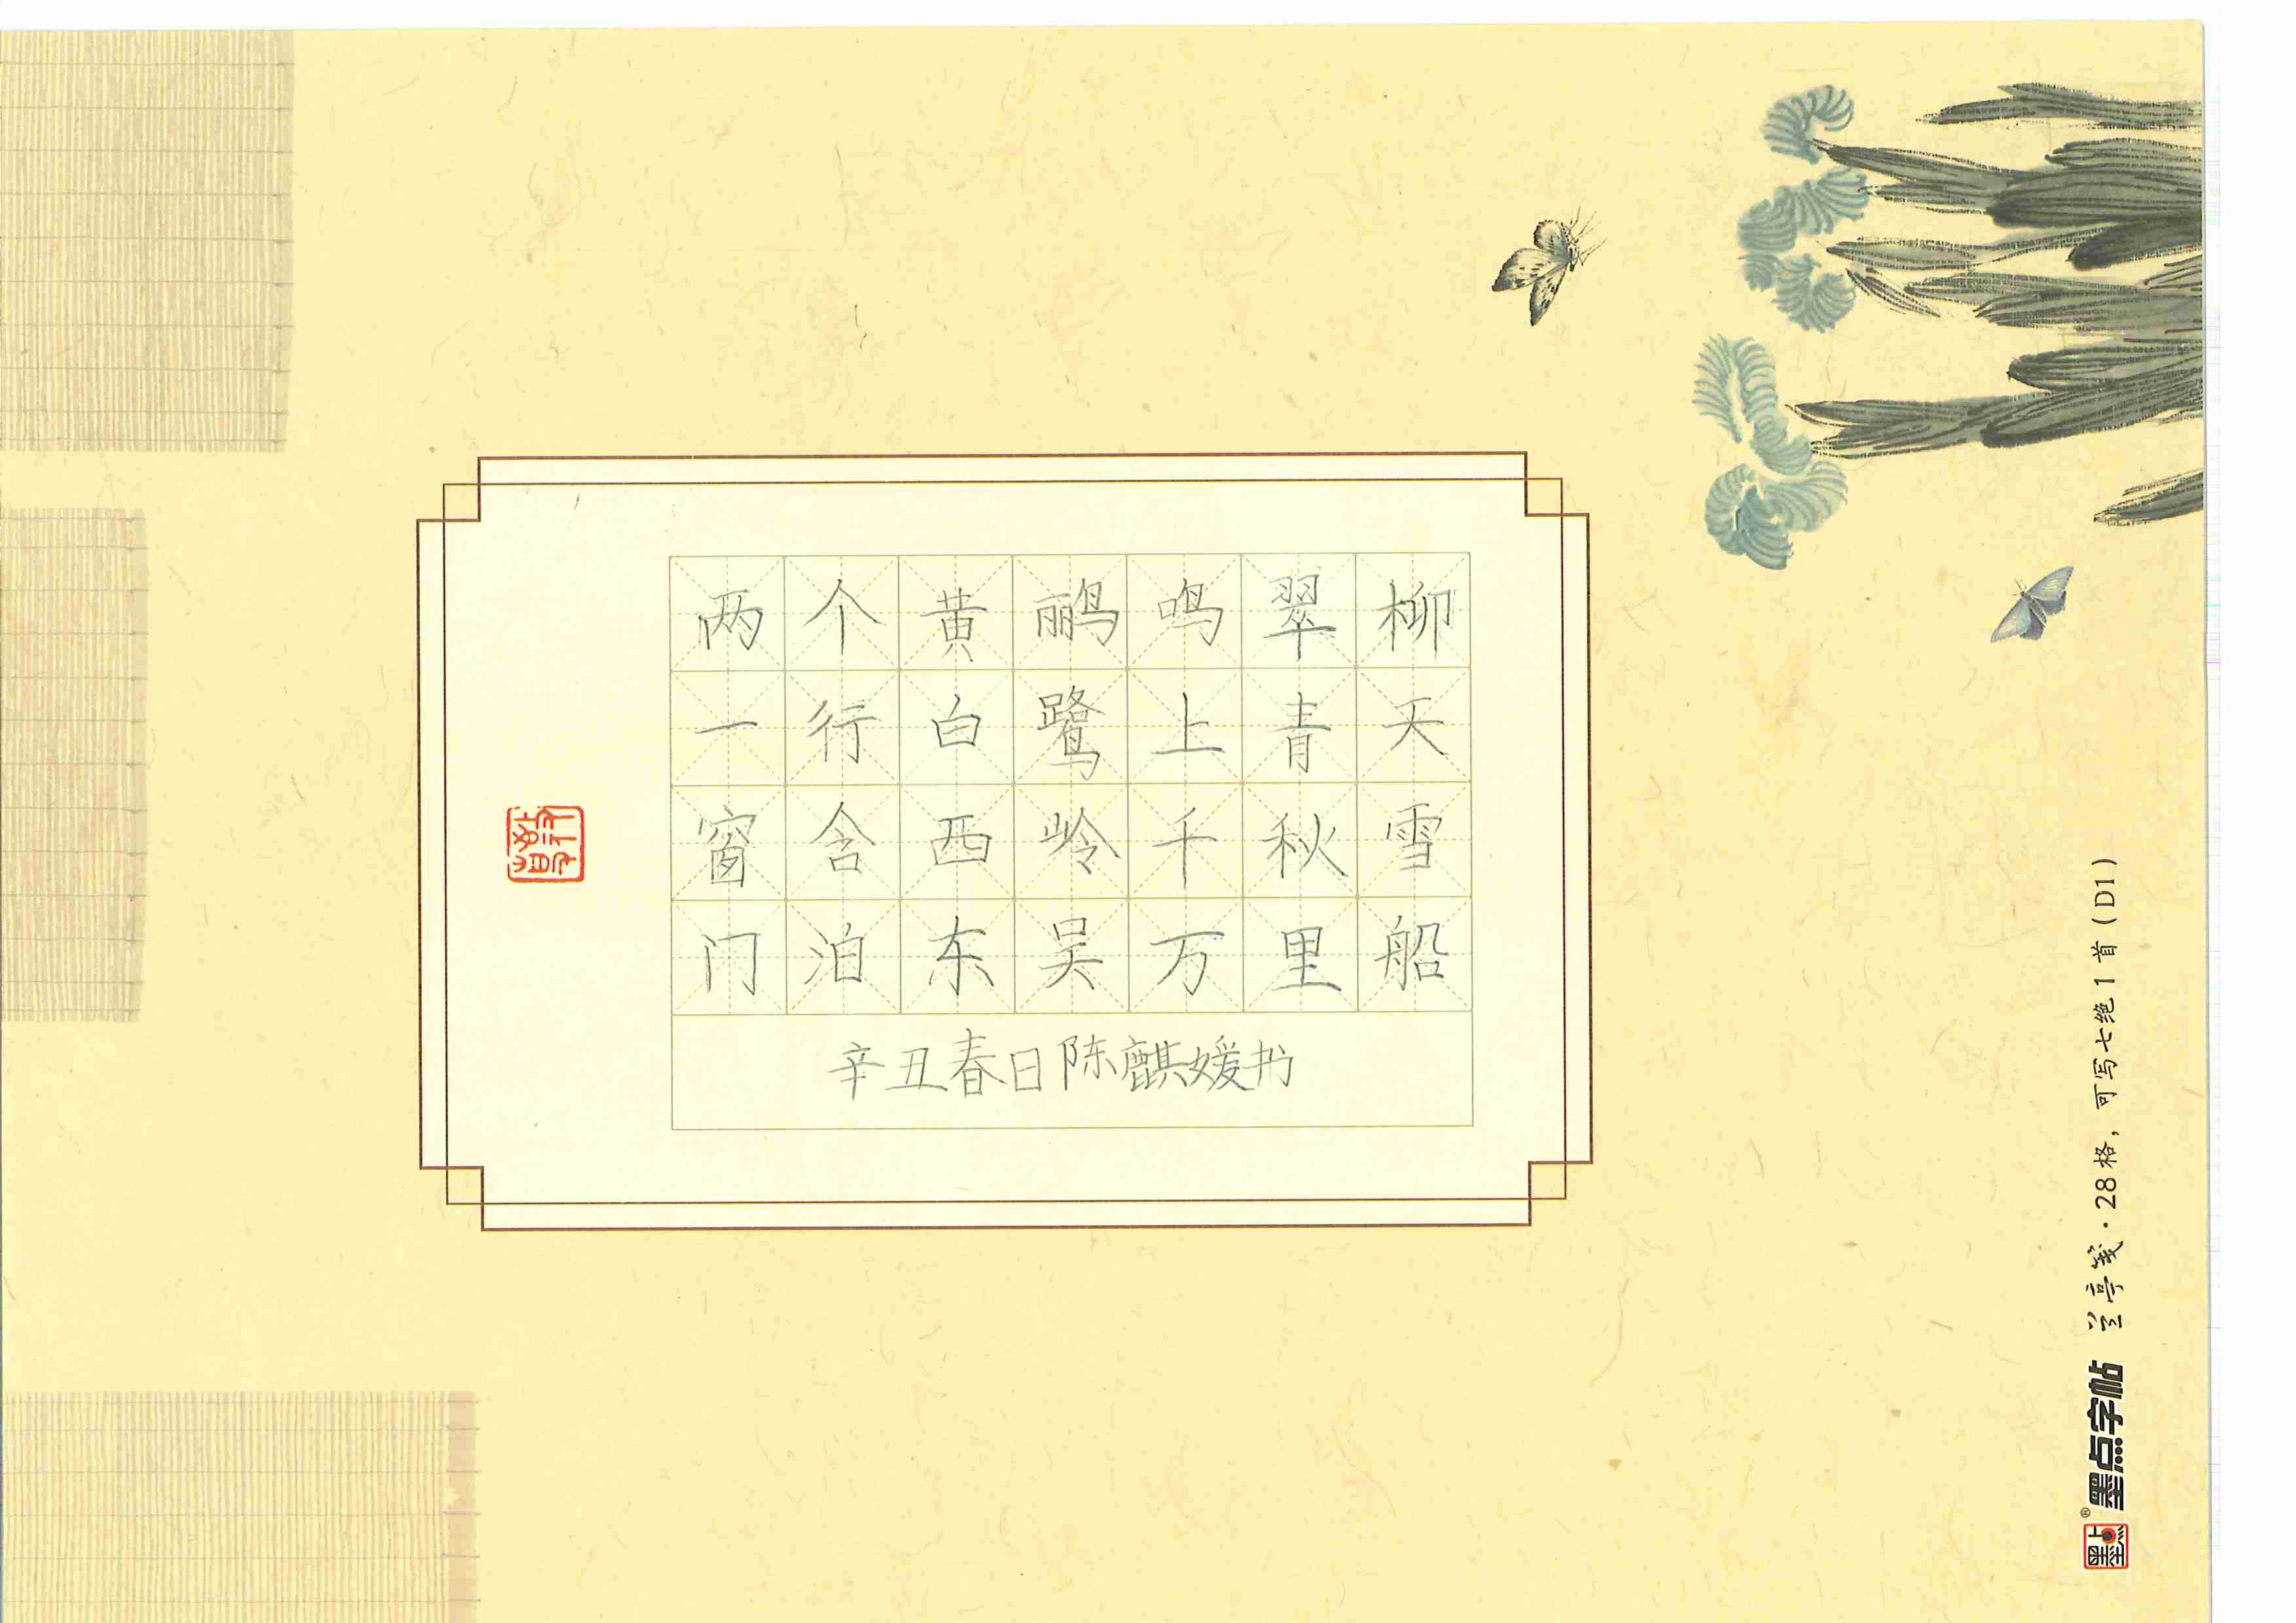 两个黄鹂鸣翠柳
一行白鹭上青天
窗含西岭千秋雪
门泊东吴万里船
辛丑春日陈麒媛书
墨点字帖 兰亭笺·28格，可写七绝1首（D1）
墨点